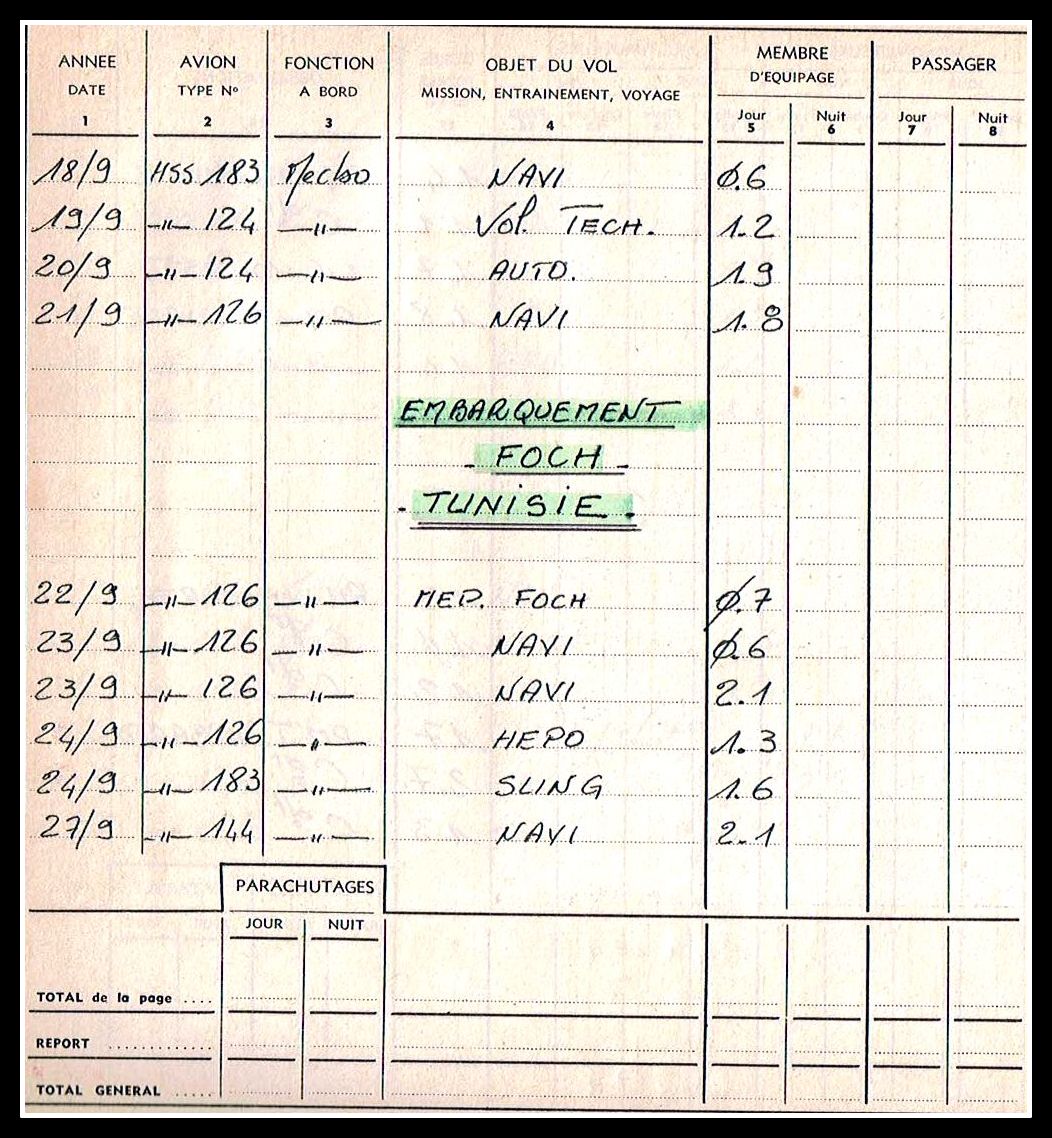 ANNEE AVION FONCTION OBJET DU VOL MEMBRE PASSAGER
DATE TYPE No A BORD MISSION, ENTRAINEMENT, VOYAGE D'EQUIPAGE
Jour Nuit Jour Nuit
1 2 3 4 5 6 7 8
18/9 HSS 183 Mecbo NAVI Ø.6
19/9 —"— 124 —"— Vol. TECH. 1.2
20/9 —"— 124 —"— AUTO. 1.9
21/9 —"— 126 —"— NAVI 1.8
EMBARQUEMENT
- FOCH -
- TUNISIE -
22/9 —"— 126 —"— MEP. FOCH Ø.7
23/9 —"— 126 —"— NAVI Ø.6
23/9 —"— 126 —"— NAVI 2.1
24/9 —"— 126 —"— HEPO 1.3
24/9 —"— 183 —"— SLING 1.6
27/9 —"— 144 —"— NAVI 2.1
PARACHUTAGES
JOUR NUIT
TOTAL de la page ....
REPORT ............
TOTAL GENERAL .....